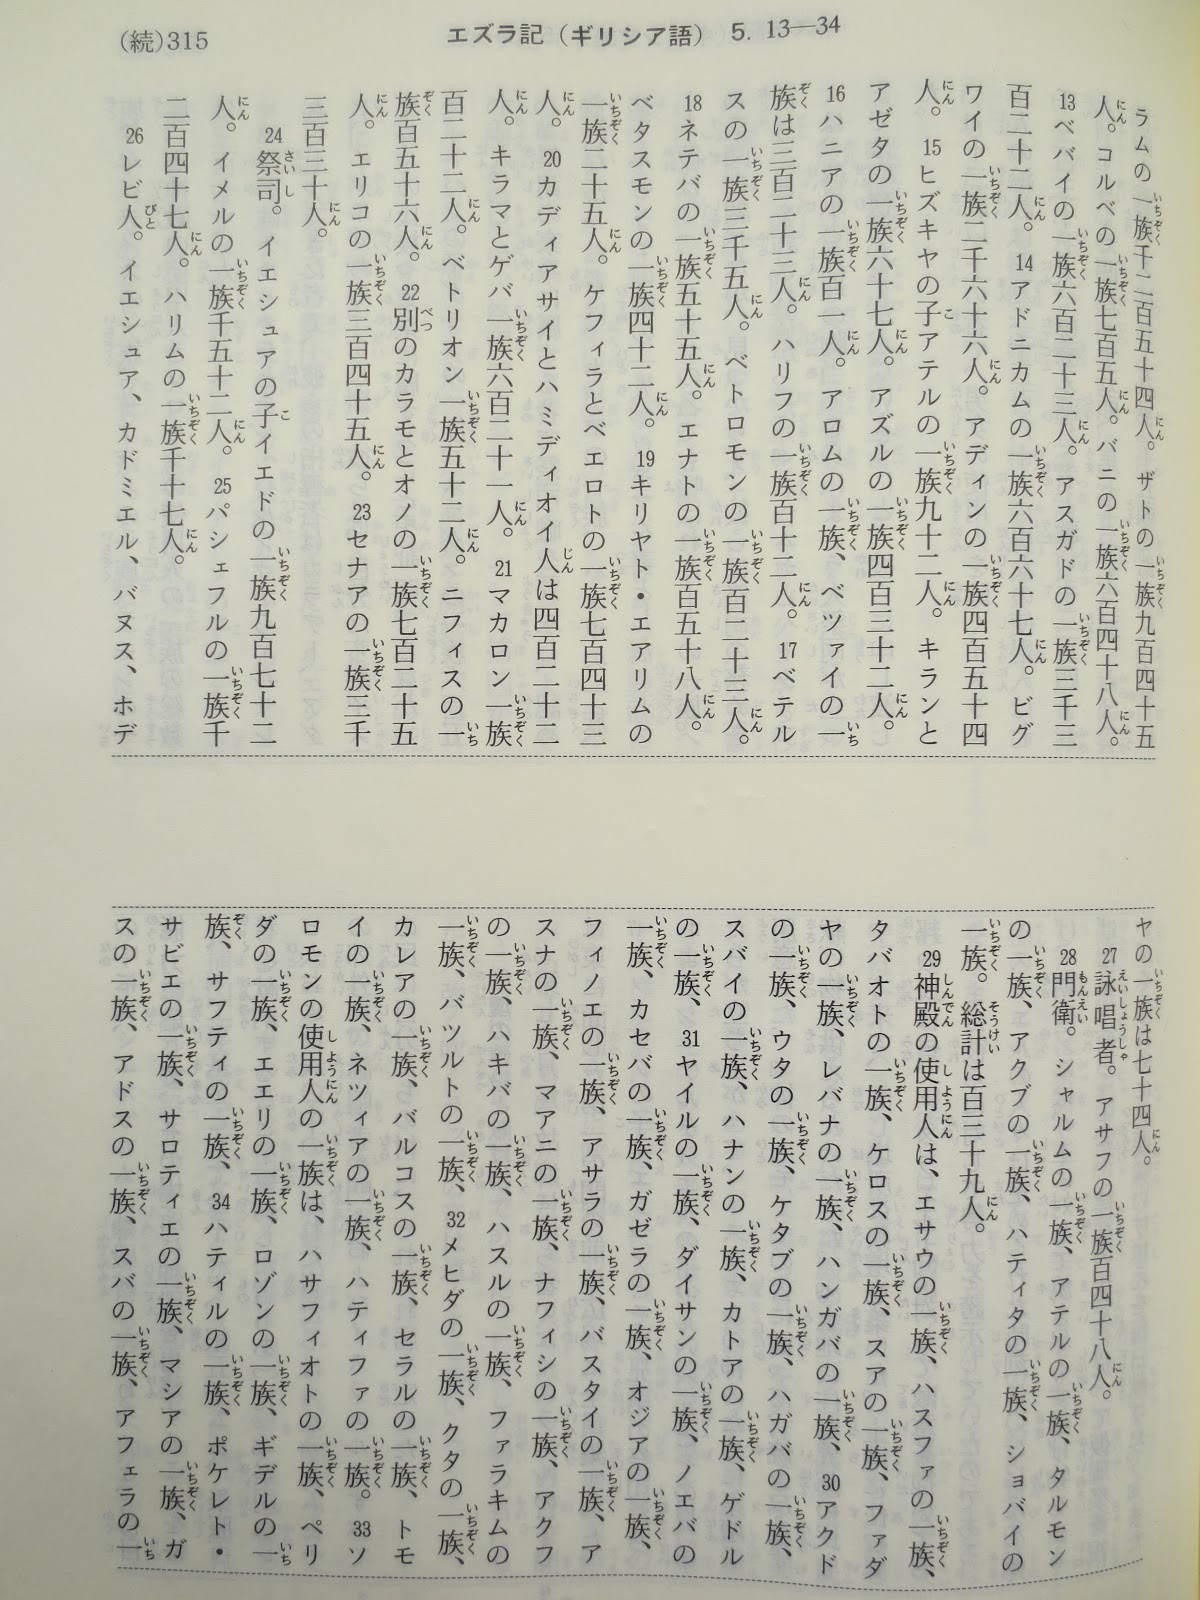 (続)315
エズラ記（ギリシア語） 5. 13—34
ラムの一族千二百五十四人。ザトの一族九百四十五
人。コルベの一族七百五人。バニの一族六百四十八人。
13ベバイの一族六百二十三人。アスガドの一族三千三
百二十二人。14アドニカムの一族六百六十七人。ビグ
ワイの一族二千六十六人。アディンの一族四百五十四
人。15ヒズキヤの子アテルの一族九十二人。キランと
アゼタの一族六十七人。アズルの一族四百三十二人。
16ハニアの一族百一人。アロムの一族、ベツァイの一
族は三百二十三人。ハリフの一族百十二人。17ベテル
スの一族三千五人。ベトロモンの一族百二十三人。
18ネテバの一族五十五人。エナトの一族百五十八人。
ベタスモンの一族四十二人。19キリヤト・エアリムの
一族二十五人。ケフィラとベエロトの一族七百四十三
人。20カディアサイとハミディオイ人は四百二十二
人。キラマとゲバ一族六百二十一人。21マカロン一族
百二十二人。ベトリオン一族五十二人。ニフィスの一
族百五十六人。22別のカラモとオノの一族七百二十五
人。エリコの一族三百四十五人。23セナアの一族三千
三百三十人。
24祭司。イエシュアの子イエドの一族九百七十二
人。イメルの一族千五十二人。25パシェフルの一族千
二百四十七人。ハリムの一族千十七人。
26レビ人。イエシュア、カドミエル、バヌス、ホデ
ヤの一族は七十四人。
27詠唱者。アサフの一族百四十八人。
28門衛。シャルムの一族、アテルの一族、タルモン
の一族、アクブの一族、ハティタの一族、ショバイの
一族。総計は百三十九人。
29神殿の使用人は、エサウの一族、ハスファの一族、
タバオトの一族、ケロスの一族、スアの一族、ファダ
ヤの一族、レバナの一族、ハンガバの一族、30アクド
の一族、ウタの一族、ケタブの一族、ハガバの一族、
スバイの一族、ハナンの一族、カトアの一族、ゲドル
の一族、31ヤイルの一族、ダイサンの一族、ノエバの
一族、カセバの一族、ガゼラの一族、オジアの一族、
フィノエの一族、アサラの一族、バスタイの一族、ア
スナの一族、マアニの一族、ナフィシの一族、アクフ
の一族、ハキバの一族、ハスルの一族、ファラキムの
一族、バツルトの一族、32メヒダの一族、クタの一族、
カレアの一族、バルコスの一族、セラルの一族、トモ
イの一族、ネツィアの一族、ハティファの一族。33ソ
ロモンの使用人の一族は、ハサフィオトの一族、ペリ
ダの一族、エエリの一族、ロゾンの一族、ギデルの一
族、サフティの一族、34ハティルの一族、ポケレト・
サビエの一族、サロティエの一族、マシアの一族、ガ
スの一族、アドスの一族、スバの一族、アフェラの一